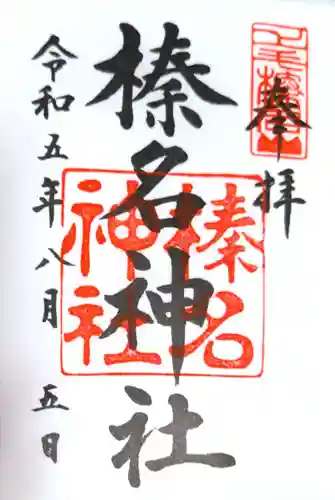 奉拝
榛名神社
令和五年八月五日
榛名
神社